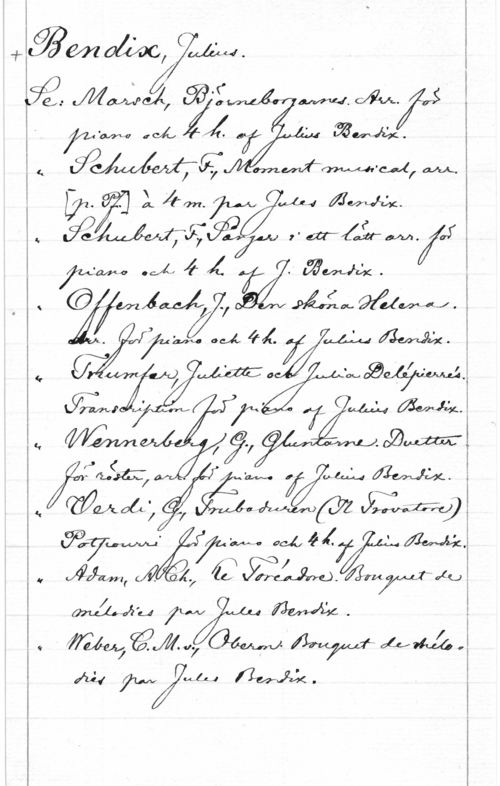 + Bendix, Julius.
Se: Marsch, Björneborgarnes. Arr. för
piano och 4 h. af Julius Bendix.
" Schubert, F., Moment musical, arr.
[p. Pf.] à 4 m. par Jules Bendix.
" Schubert, F., Sånger i ett lätt arr. för
piano och 4 h. af J. Bendix.
" Offenbach, J., Den sköna Helena.
Arr. för piano och 4 h. af Julius Bendix.
" Triumfer, Juliette och Julia Delépierres.
Transcription för piano af Julius Bendix.
" Wennerberg, G., Gluntarne. Duetter
för röster, arr. för piano af Julius Bendix.
" Verdi, G., Trubaduren (Il Trovatore)
Potpourri för piano och 4 h. af Julius Bendix.
" Adam, A. Ch., Le Toréador. Bouquet de
mélodies par Jules Bendix.
" Weber, C. M. v., Oberon. Bouquet de mélo-
dies par Jules Bendix.